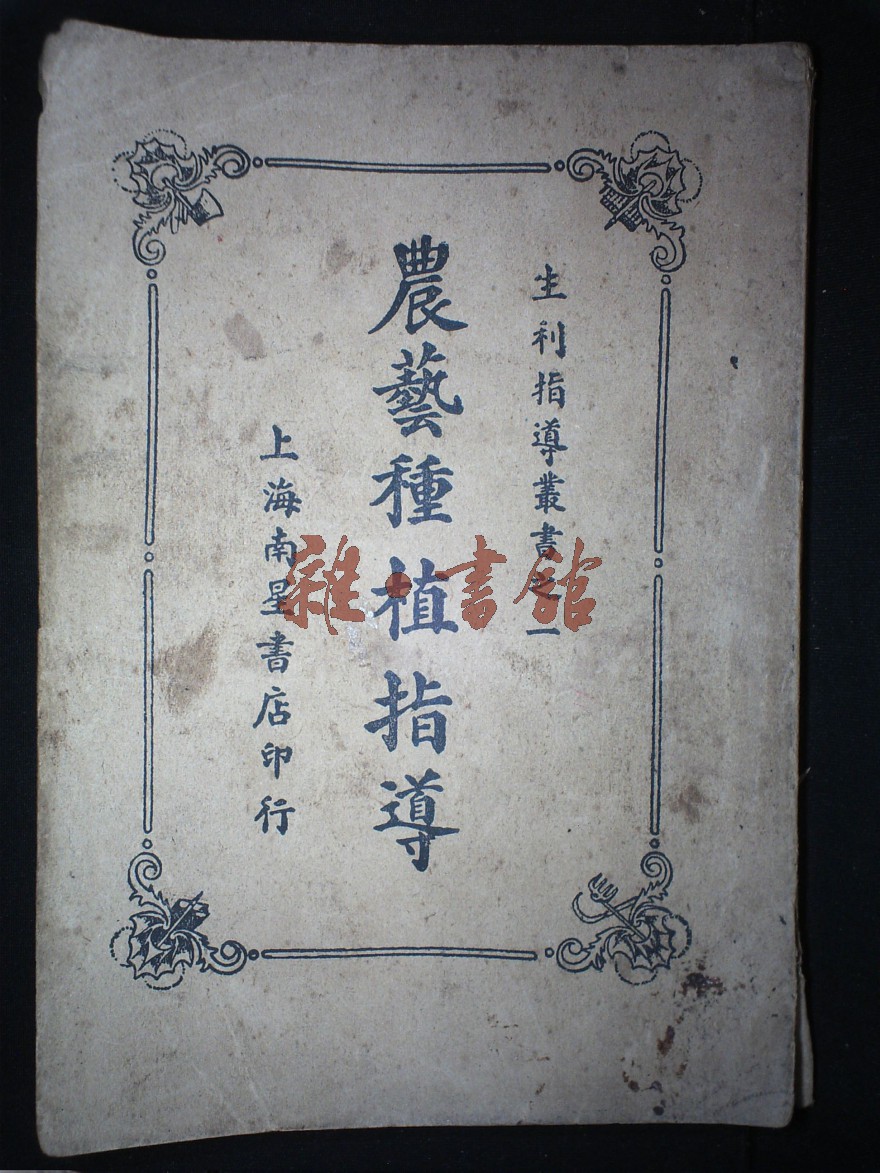 生利指導叢書之一
農藝種植指導
上海南星書店印行
雜·書館